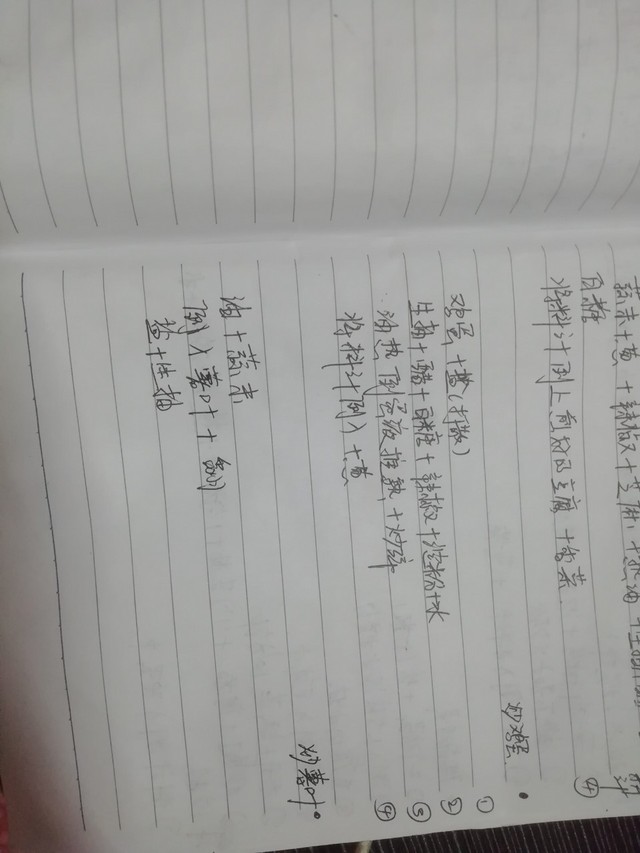 蒜末+葱+辣椒+芝麻+热油+生抽
白糖 ④
将料汁倒上煎好的豆腐+香菜
炒鸡蛋 •
鸡蛋+盐(打散) ①
生抽+醋+白糖+辣椒+淀粉+水 ②
油热倒蛋液推熟+炒碎 ③
将料汁倒入+葱 ④
炒薯叶 •
油+蒜末
倒入薯叶+翻
盐+生抽